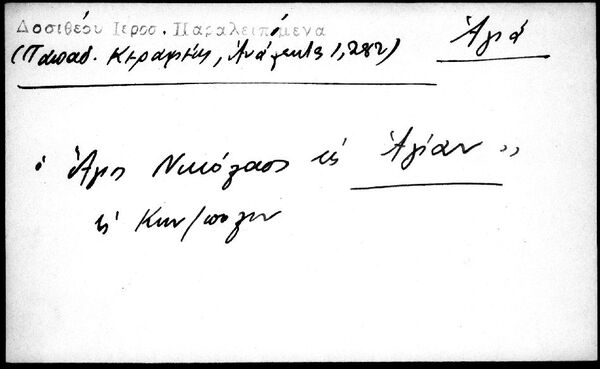 Δοσιθέου Ιεροσ. Παραλειπόμενα
(Παπαδ. Κεραμεύς, Ανάλεκτα 1, 282) Ἁγιά
ὁ Ἅγιος Νικόλαος εἰς Ἁγίαν,,
εἰς Κων/πολιν